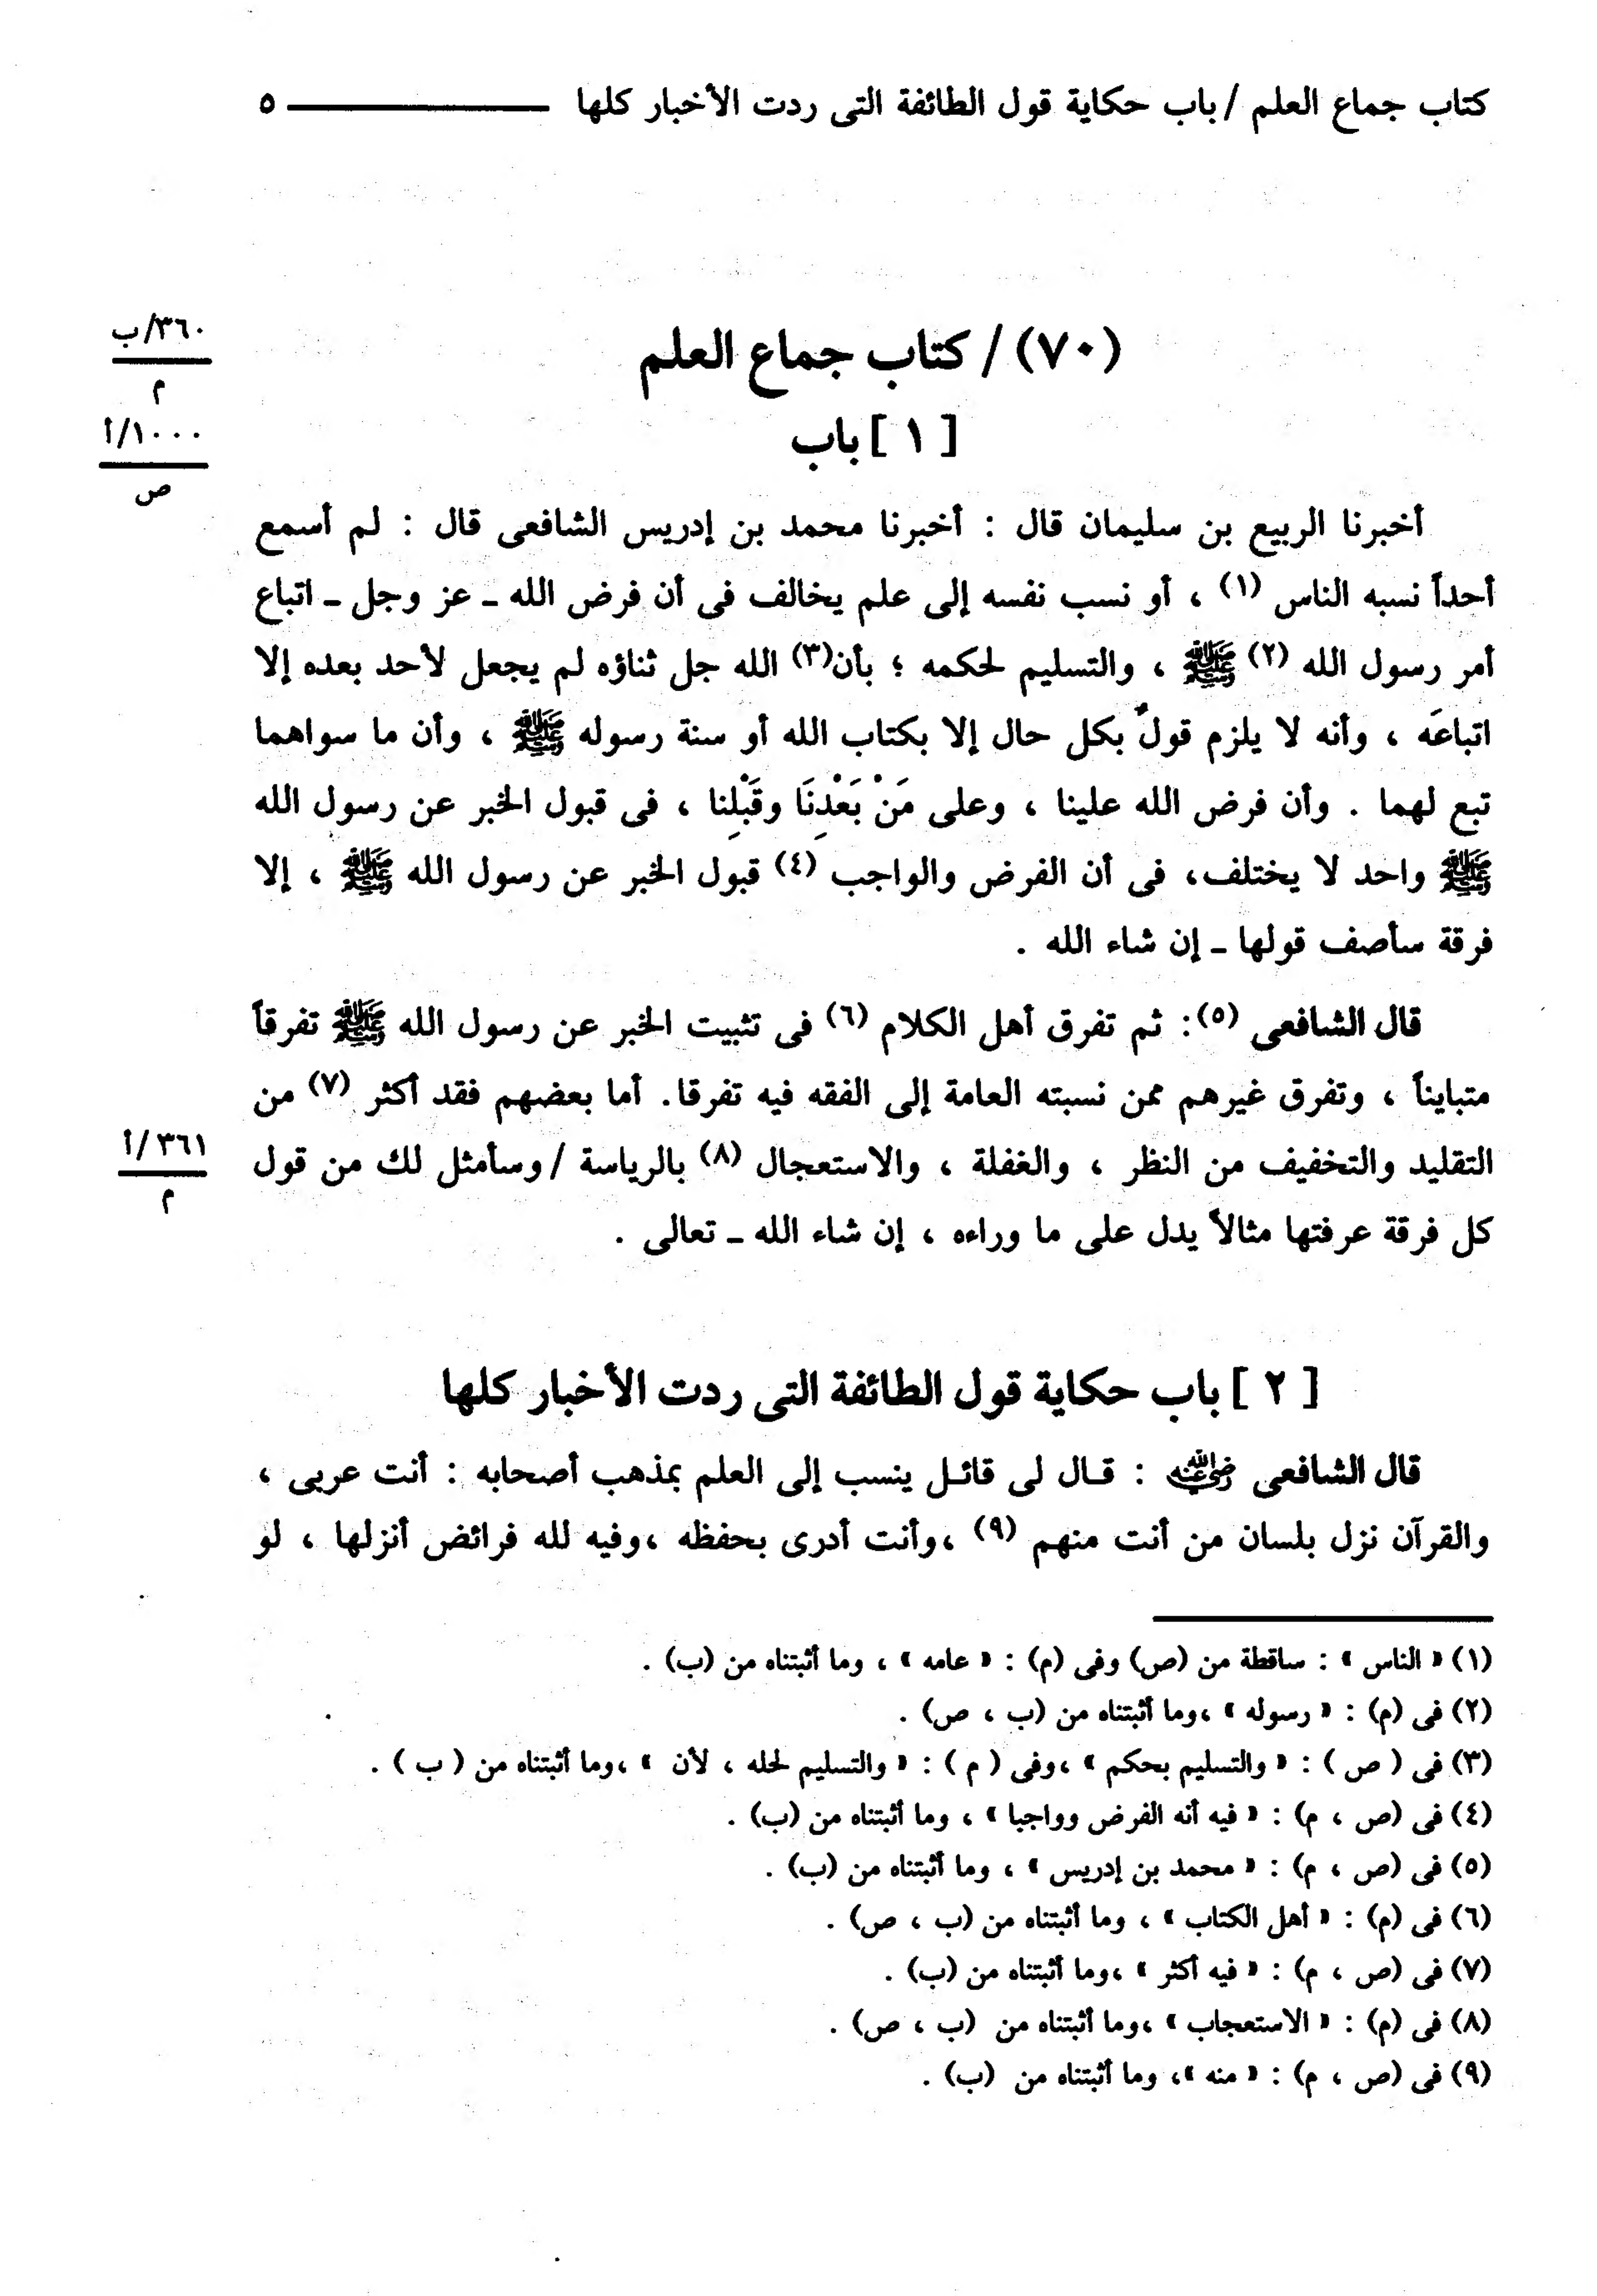 كتاب جماع العلم / باب حكاية قول الطائفة التى ردت الأخبار كلها ـــــــ ٥
٣٦٠/ب
م
١٠٠٠/أ
ص
(٧٠) / كتاب جماع العلم
[ ١ ] باب
أخبرنا الربيع بن سليمان قال : أخبرنا محمد بن إدريس الشافعى قال : لم أسمع
أحداً نسبه الناس (١) ، أو نسب نفسه إلى علم يخالف فى أن فرض الله ـ عز وجل ـ اتباع
أمر رسول الله (٢) ﷺ ، والتسليم لحكمه ؛ بأن(٣) الله جل ثناؤه لم يجعل لأحد بعده إلا
اتباعَه ، وأنه لا يلزم قولٌ بكل حال إلا بكتاب الله أو سنة رسوله ﷺ ، وأن ما سواهما
تبع لهما . وأن فرض الله علينا ، وعلى مَنْ بَعْدِنَا وقَبْلِنا ، فى قبول الخبر عن رسول الله
ﷺ واحد لا يختلف، فى أن الفرض والواجب (٤) قبول الخبر عن رسول الله ﷺ ، إلا
فرقة سأصف قولها ـ إن شاء الله .
قال الشافعى (٥) : ثم تفرق أهل الكلام (٦) فى تثبيت الخبر عن رسول الله ﷺ تفرقاً
متبايناً ، وتفرق غيرهم ممن نسبته العامة إلى الفقه فيه تفرقا. أما بعضهم فقد أكثر (٧) من
التقليد والتخفيف من النظر ، والغفلة ، والاستعجال (٨) بالرياسة / وسأمثل لك من قول
٣٦١/أ
م
كل فرقة عرفتها مثالاً يدل على ما وراءه ، إن شاء الله ـ تعالى .
[ ٢ ] باب حكاية قول الطائفة التى ردت الأخبار كلها
قال الشافعى رضي الله عنه : قـال لى قائـل ينسب إلى العلم بمذهب أصحابه : أنت عربى ،
والقرآن نزل بلسان من أنت منهم (٩) ،وأنت أدرى بحفظه ،وفيه لله فرائض أنزلها ، لو
(١) « الناس » : ساقطة من (ص) وفى (م) : « عامه » ، وما أثبتناه من (ب) .
(٢) فى (م) : « رسوله » ،وما أثبتناه من (ب ، ص) .
(٣) فى ( ص ) : « والتسليم بحكم » ،وفى ( م ) : « والتسليم لحله ، لأن » ،وما أثبتناه من ( ب ) .
(٤) فى (ص ، م) : « فيه أنه الفرض وواجبا » ، وما أثبتناه من (ب) .
(٥) فى (ص ، م) : « محمد بن إدريس » ، وما أثبتناه من (ب) .
(٦) فى (م) : « أهل الكتاب » ، وما أثبتناه من (ب ، ص) .
(٧) فى (ص ، م) : « فيه أكثر » ،وما أثبتناه من (ب) .
(٨) فى (م) : « الاستعجاب » ،وما أثبتناه من (ب ، ص) .
(٩) فى (ص ، م) : « منه »، وما أثبتناه من (ب) .